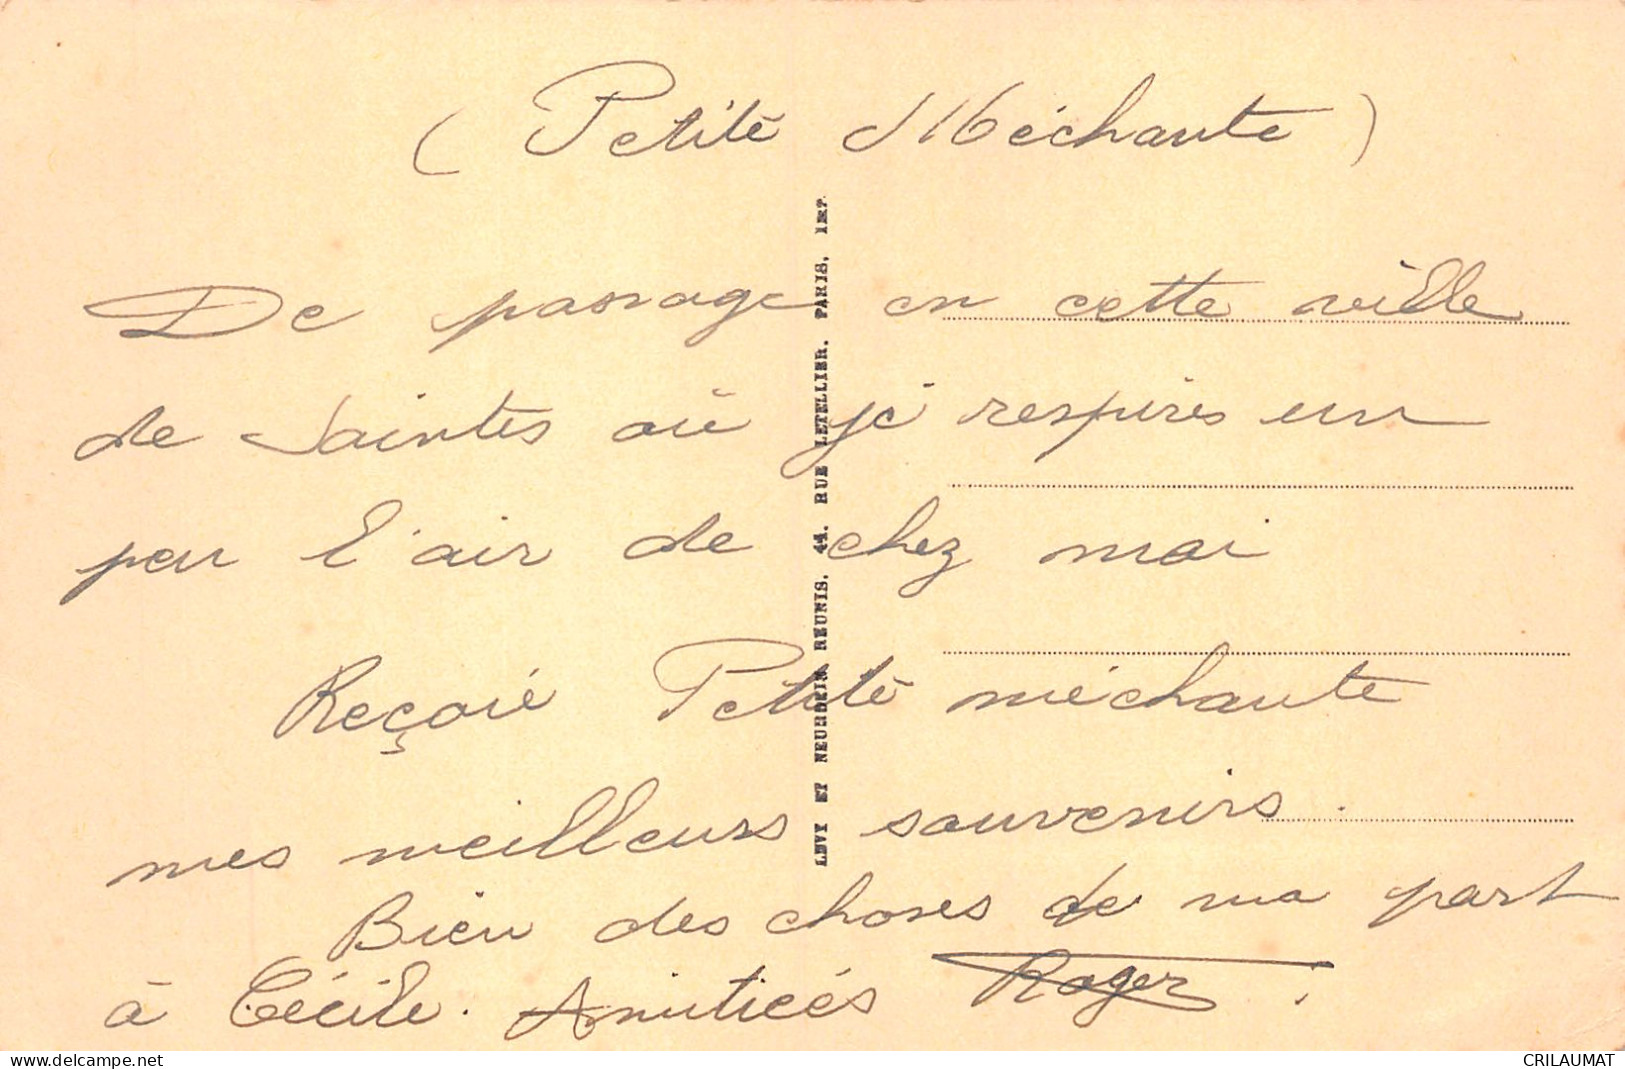 ( Petite Méchante )
De passage en cette ville
de Saintes où je respires un
peu l'air de chez moi
Reçoie Petite méchante
mes meilleurs souvenirs.
Bien des choses de ma part
à Cécile. Amitiées Roger
LEVY ET NEURDEIN REUNIS. 44. RUE LETELLIER. PARIS, IMP.
www.delcampe.net
CRILAUMAT